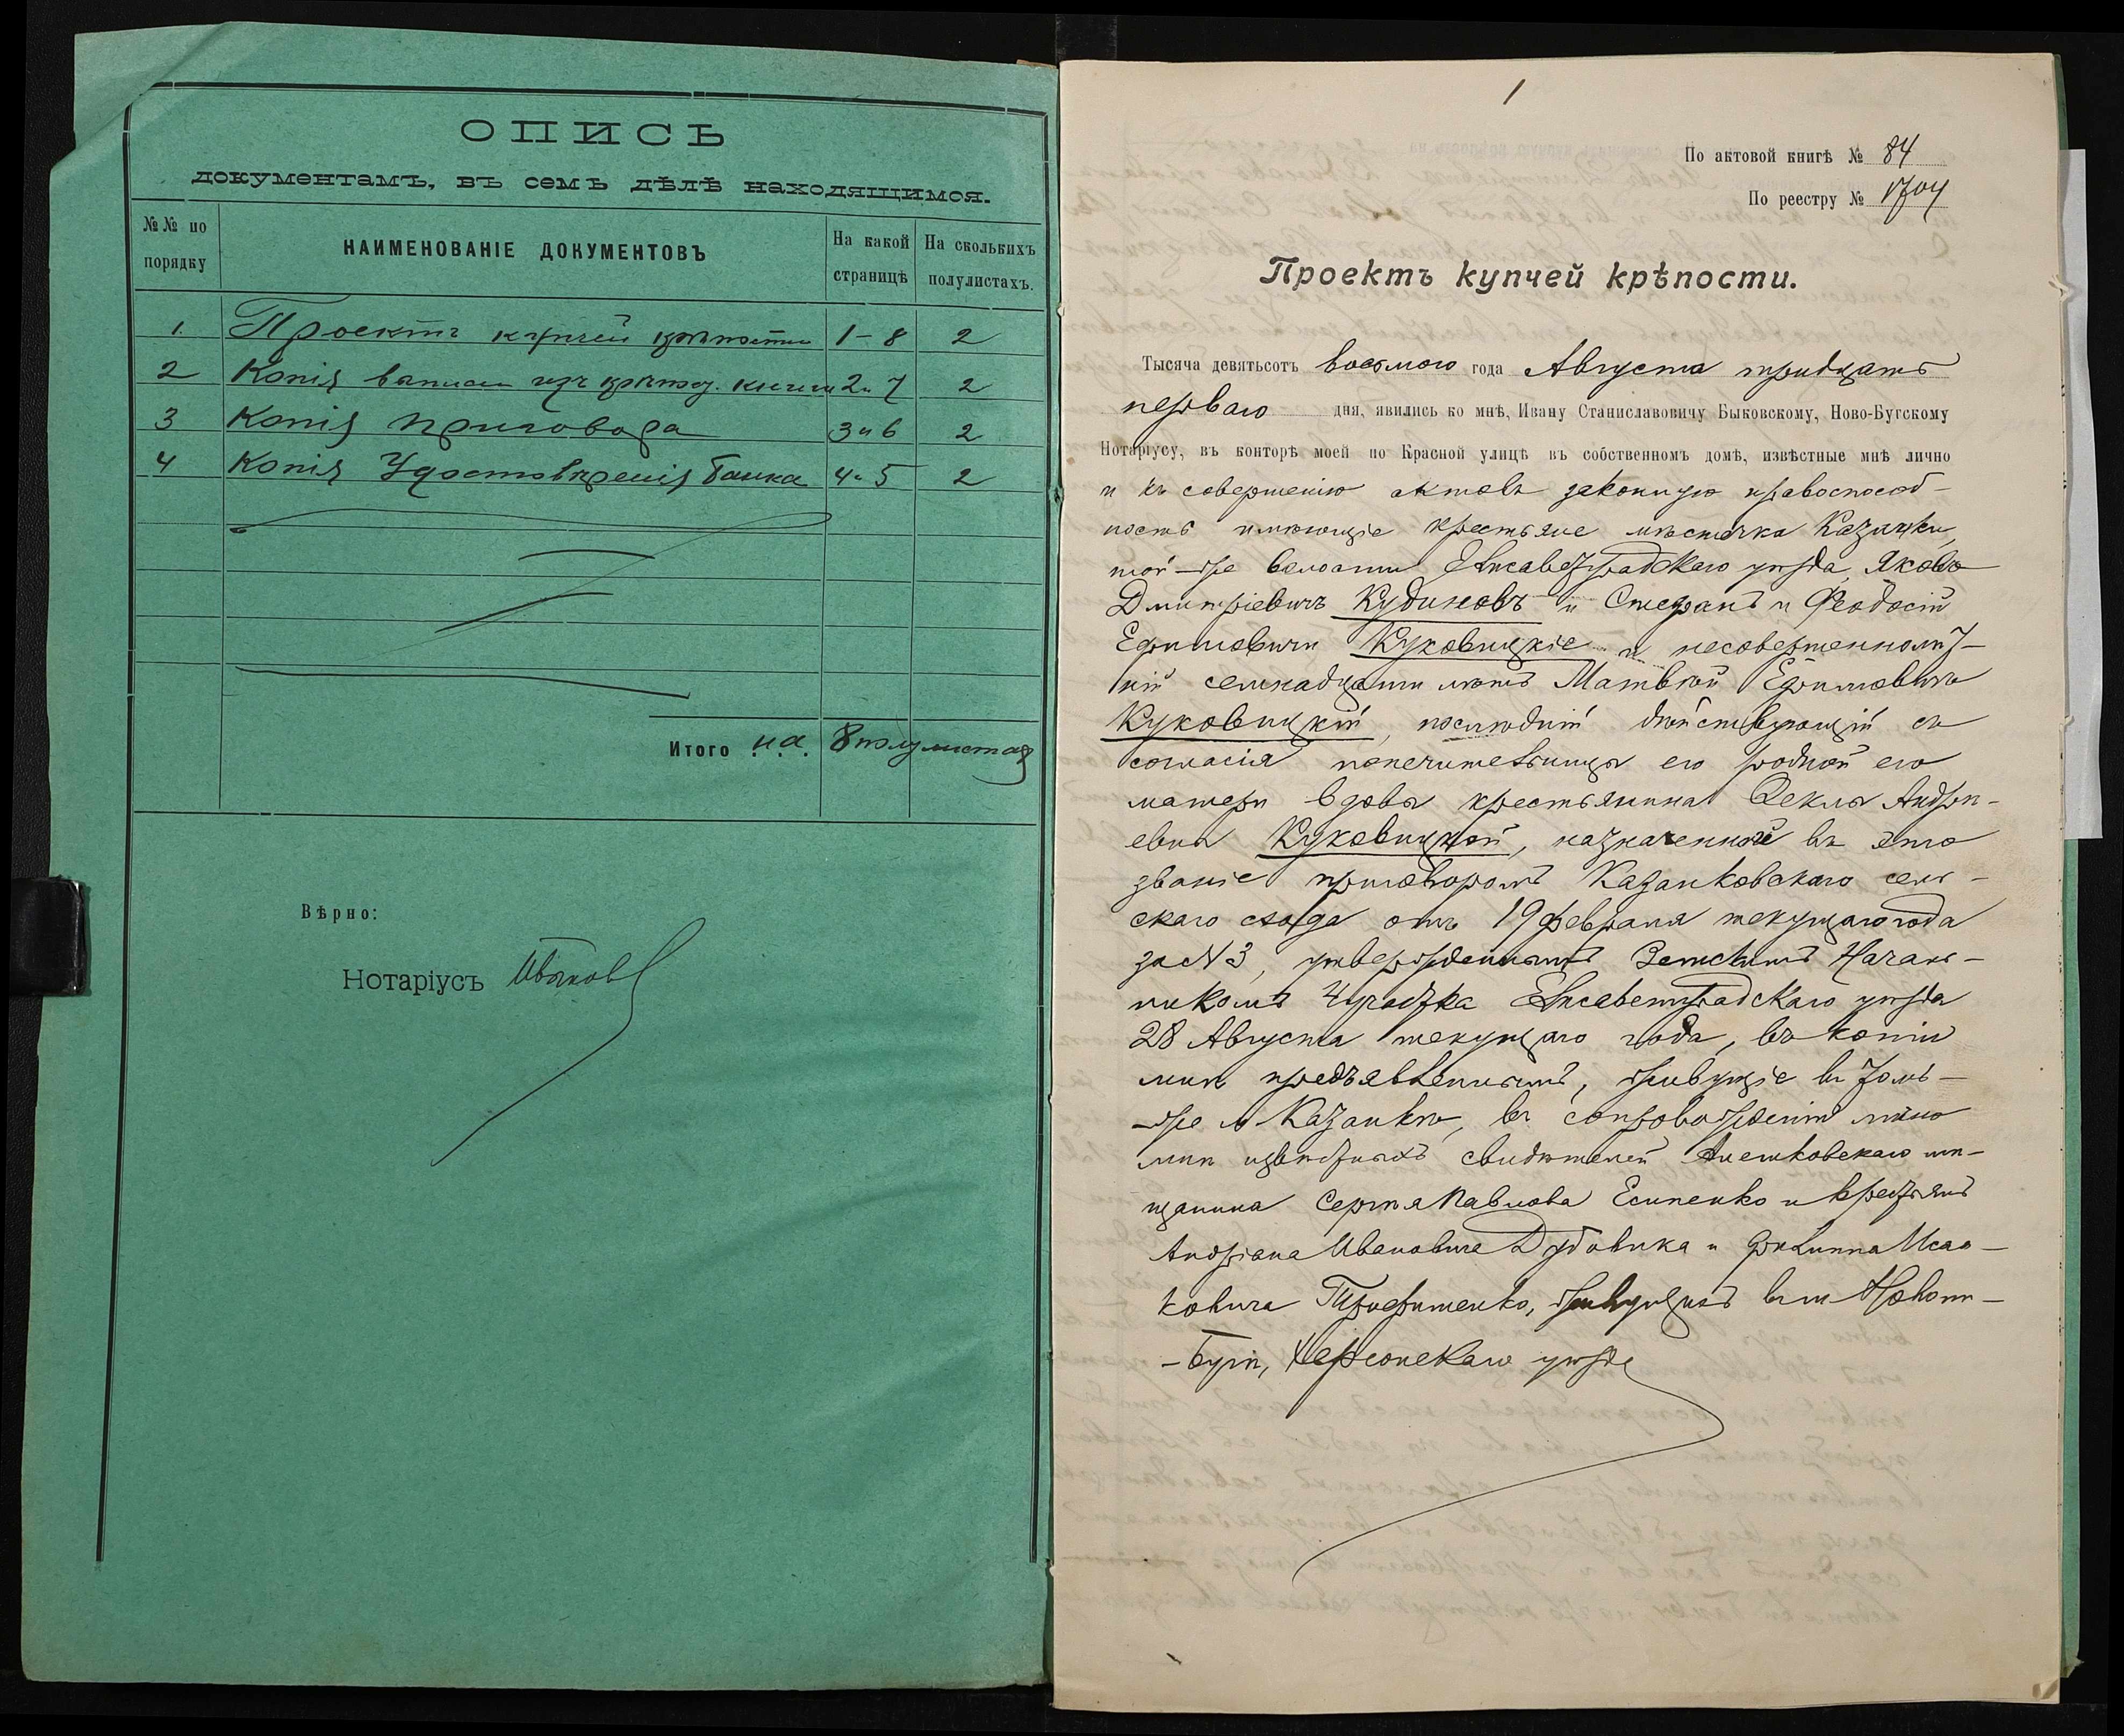 ОПИСЬ
документамъ, въ семъ дѣлѣ находящимся.
№№ по порядку
НАИМЕНОВАНІЕ ДОКУМЕНТОВЪ
На какой страницѣ
На сколькихъ полулистахъ.
1. Проектъ купчей крѣпости 1-8 2
2 Копія выписи изъ крѣпост. книги 2 и 7 2
3 Копія приговора 3 и 6 2
4 Копія Удостовѣренія банка 4 и 5 2
Итого на 8 полулистах
Вѣрно:
Нотаріусъ
1
По актовой книгѣ № 84
По реестру № 1704
Проектъ купчей крѣпости.
Тысяча девятьсотъ восьмого года Августа тридцать
перваго дня, явились ко мнѣ, Ивану Станиславовичу Быковскому, Ново-Бугскому
Нотаріусу, въ конторѣ моей по Красной улицѣ въ собственномъ домѣ, извѣстные мнѣ лично
и къ совершенію актовъ законную правоспособ-
ность имѣющіе крестьяне мѣстечка Казанки,
той-же волости Елисаветградскаго уѣзда, Яковъ
Дмитріевичъ Кудиновъ и Стефанъ и Феодосій
Ефимовичи Куковицкіе и несовершеннолѣт-
ній семнадцати лѣтъ Матвѣй Ефимовичъ
Куковицкій, послѣдній дѣйствующій съ
согласія попечительницы его родной его
матери вдовы крестьянина Феклы Андре-
евны Куковицкой, назначенной въ это
званіе приговоромъ Казанковскаго сель-
скаго схода отъ 19 февраля текущаго года
за № 3, утвержденнымъ Земскимъ Началь-
никомъ 4 участка Елисаветградскаго уѣзда
28 Августа текущаго года, въ копіи
мнѣ предъявленнымъ, живущіе въ томъ-
-же м Казанкѣ, въ сопровожденіи лично
мнѣ извѣстныхъ свидѣтелей Алешковскаго мѣ-
щанина Сергѣя Павлова Есипенко и крестьянъ
Андріана Ивановича Дубовика и Филиппа Исаа-
ковича Трофименко, живущихъ въ м Новомъ-
-Бугѣ, Херсонскаго уѣзда